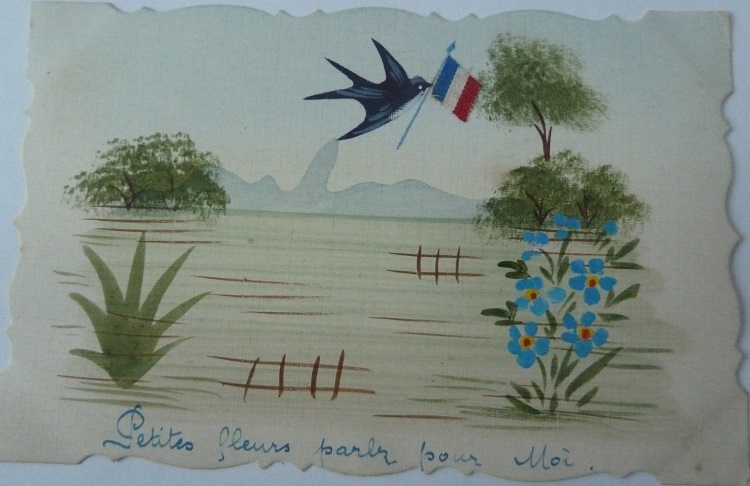 Petites fleurs parlez pour Moi.